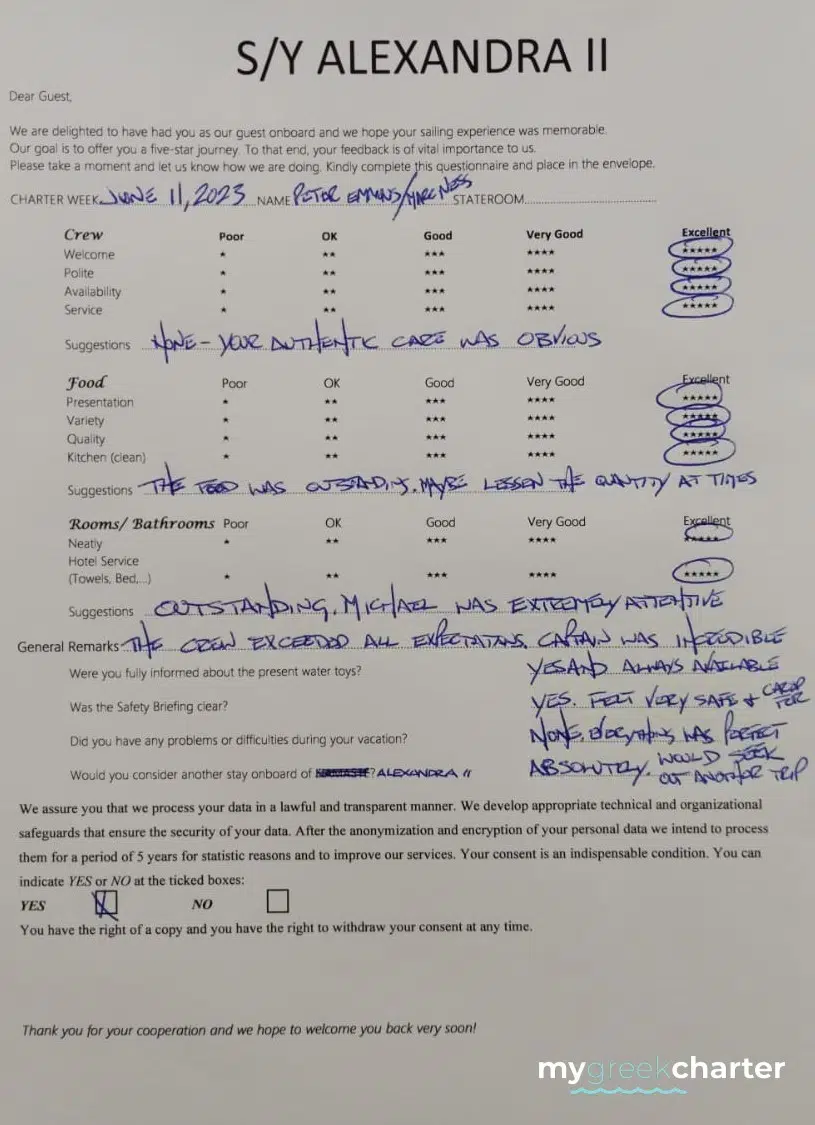 S/Y ALEXANDRA II
Dear Guest,
We are delighted to have had you as our guest onboard and we hope your sailing experience was memorable.
Our goal is to offer you a five-star journey. To that end, your feedback is of vital importance to us.
Please take a moment and let us know how we are doing. Kindly complete this questionnaire and place in the envelope.
CHARTER WEEK JUNE 11, 2023 NAME PETER EMMONS/ STATEROOM
Crew Poor OK Good Very Good Excellent
Welcome * ** *** **** *****
Polite * ** *** **** *****
Availability * ** *** **** *****
Service * ** *** **** *****
Suggestions NONE - YOUR AUTHENTIC CARE WAS OBVIOUS
Food Poor OK Good Very Good Excellent
Presentation * ** *** **** *****
Variety * ** *** **** *****
Quality * ** *** **** *****
Kitchen (clean) * ** *** **** *****
Suggestions THE FOOD WAS . MAYBE LESSEN THE QUANTITY AT TIMES
Rooms/ Bathrooms Poor OK Good Very Good Excellent
Neatly * ** *** **** *****
Hotel Service
(Towels, Bed,...) * ** *** **** *****
Suggestions OUTSTANDING. MICHAEL WAS EXTREMELY ATTENTIVE
General Remarks THE CREW EXCEEDED ALL EXPECTATIONS. CAPTAIN WAS INCREDIBLE
Were you fully informed about the present water toys? YES AND ALWAYS AVAILABLE
Was the Safety Briefing clear? YES. FELT VERY SAFE + CARED FOR
Did you have any problems or difficulties during your vacation? NONE. EVERYTHING WAS PERFECT
Would you consider another stay onboard of ? ALEXANDRA II ABSOLUTELY. WOULD SEEK OUT ANOTHER TRIP
We assure you that we process your data in a lawful and transparent manner. We develop appropriate technical and organizational
safeguards that ensure the security of your data. After the anonymization and encryption of your personal data we intend to process
them for a period of 5 years for statistic reasons and to improve our services. Your consent is an indispensable condition. You can
indicate YES or NO at the ticked boxes:
YES NO
You have the right of a copy and you have the right to withdraw your consent at any time.
Thank you for your cooperation and we hope to welcome you back very soon!
mygreekcharter